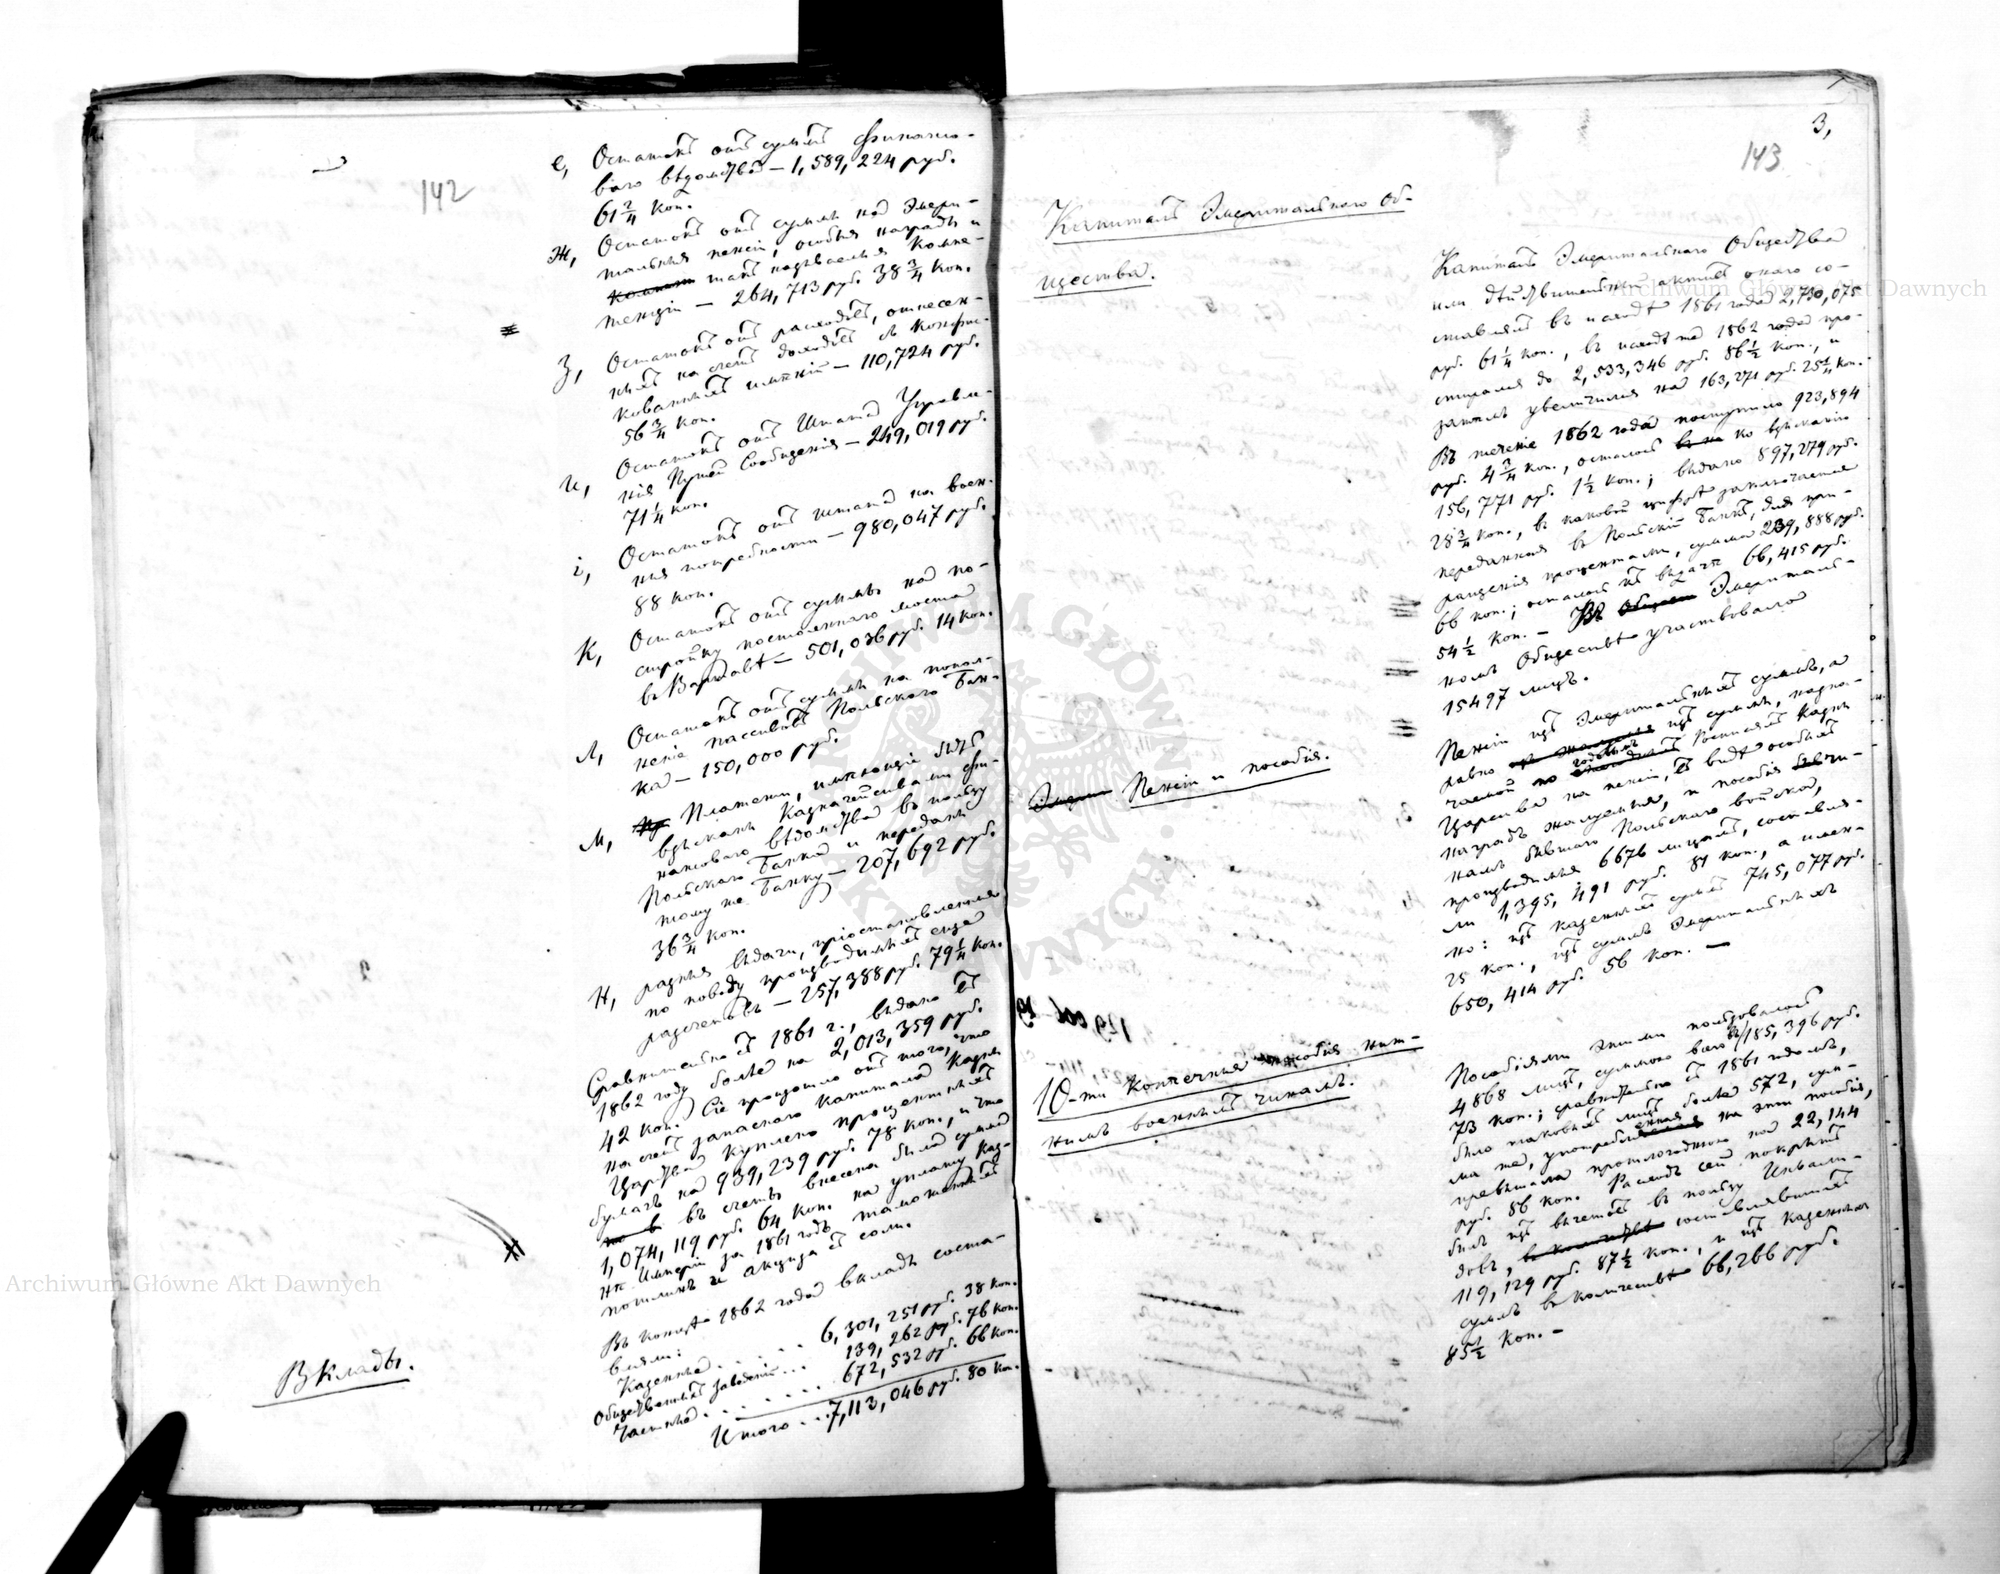 142
е, Остатокъ отъ суммъ Финансо-
ваго вѣдомства — 1,589,224 руб.
61 2/4 коп.
ж, Остатокъ отъ суммы на Эмери-
тальныя пенсіи, особыя награды и
такъ называемыя Компе-
тенціи — 264,713 руб. 38 3/4 коп.
З, Остатокъ отъ расходовъ, отнесен-
ныхъ на счетъ доходовъ съ конфис-
кованныхъ имѣній — 110,724 руб.
56 3/4 коп.
и, Остатокъ отъ Штата Управле-
нія Путей Сообщенія — 249,019 руб.
71 1/4 коп.
і, Остатокъ отъ штата на воен-
ныя потребности — 980,047 руб.
88 коп.
К, Остатокъ отъ суммы на по-
стройку постояннаго моста
въ Варшавѣ — 501,036 руб. 14 коп.
Л, Остатокъ отъ суммы на попол-
неніе пассивовъ Польскаго Бан-
ка — 150,000 руб.
М, Платежи, имѣющіе быть
взысканы Казначействами фи-
нансоваго вѣдомства въ пользу
Польскаго Банка и переданы
тому же Банку — 207,692 руб.
36 3/4 коп.
Н, разныя выдачи, пріостановленныя
по поводу производимыхъ еще
разсчетовъ — 257,388 руб. 79 1/4 коп.
Сравнительно съ 1861 г., выдано въ
1862 году болѣе на 2,013,359 руб.
42 коп. Сіе произошло отъ того, что
на счетъ запаснаго капитала Казны
Царства куплено процентныхъ
бумагъ на 939,239 руб. 78 коп., и что
въ счетъ внесена была сумма
1,074,119 руб. 64 коп. на уплату Каз-
нѣ Имперіи за 1861 годъ таможенныхъ
пошлинъ и акциза съ соли.
Вклады.
Въ концѣ 1862 года вклады соста-
вляли:
Казенные . . . . . . 6,301,251 руб. 38 коп.
Общественныхъ заведеній . . . 139,262 руб. 76 коп.
Частные . . . . . . 672,532 руб. 66 коп.
Итого . . . 7,113,046 руб. 80 коп.
3,
143
Капиталъ Эмеритальнаго Об-
щества.
Капиталъ Эмеритальнаго Общества
или дѣйствительный активъ онаго со-
ставлялъ въ исходѣ 1861 года 2,730,075
руб. 61 1/4 коп., въ исходѣ же 1862 года про-
стирался до 2,533,346 руб. 86 1/2 коп., и
затѣмъ увеличился на 163,271 руб. 25 1/4 коп.
Въ теченіе 1862 года поступило 923,894
руб. 4 3/4 коп., осталось ко взысканію
156,771 руб. 1 1/2 коп.; выдано 897,279 руб.
28 3/4 коп., въ каковой цифрѣ заключается
переданная въ Польскій Банкъ, для при-
ращенія процентами, сумма 239,888 руб.
66 коп.; осталось къ выдачѣ 66,415 руб.
54 1/2 коп. — Въ Эмериталь-
номъ Обществѣ участвовало
15497 лицъ.
Пенсіи и пособія.
Пенсіи изъ Эмеритальныхъ суммъ, а
равно изъ суммы, назна-
чаемой по годовымъ росписямъ Казны
Царства на пенсіи, въ видѣ особыхъ
наградъ жалуемыя, и пособія чи-
намъ бывшаго Польскаго войска,
производимыя 6676 лицамъ, составля-
ли 1,395,491 руб. 81 коп., а имен-
но: изъ казенныхъ суммъ 745,077 руб.
25 коп., изъ суммъ Эмеритальныхъ
650,414 руб. 56 коп. —
10-ти Копѣечныя пособія ниж-
нимъ военнымъ чинамъ.
Пособіями этими пользовалось
4868 лицъ, суммою всего 185,396 руб.
73 коп.; сравнительно съ 1861 годомъ,
было таковыхъ лицъ болѣе 572, сум-
ма же, употребленная на эти пособія,
превышала прошлогоднюю на 22,144
руб. 86 коп. Расходъ сей покрытъ
былъ изъ вычетовъ въ пользу Инвали-
довъ, составлявшихъ
119,129 руб. 87 1/2 коп., и изъ казенныхъ
суммъ въ количествѣ 66,266 руб.
85 1/2 коп. —
Archiwum Główne Akt Dawnych
Archiwum Główne Akt Dawnych
ARCHIWUM GŁÓWNE AKT DAWNYCH